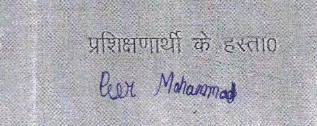 प्रशिक्षणार्थी के हस्ता०
Peer Mohammad